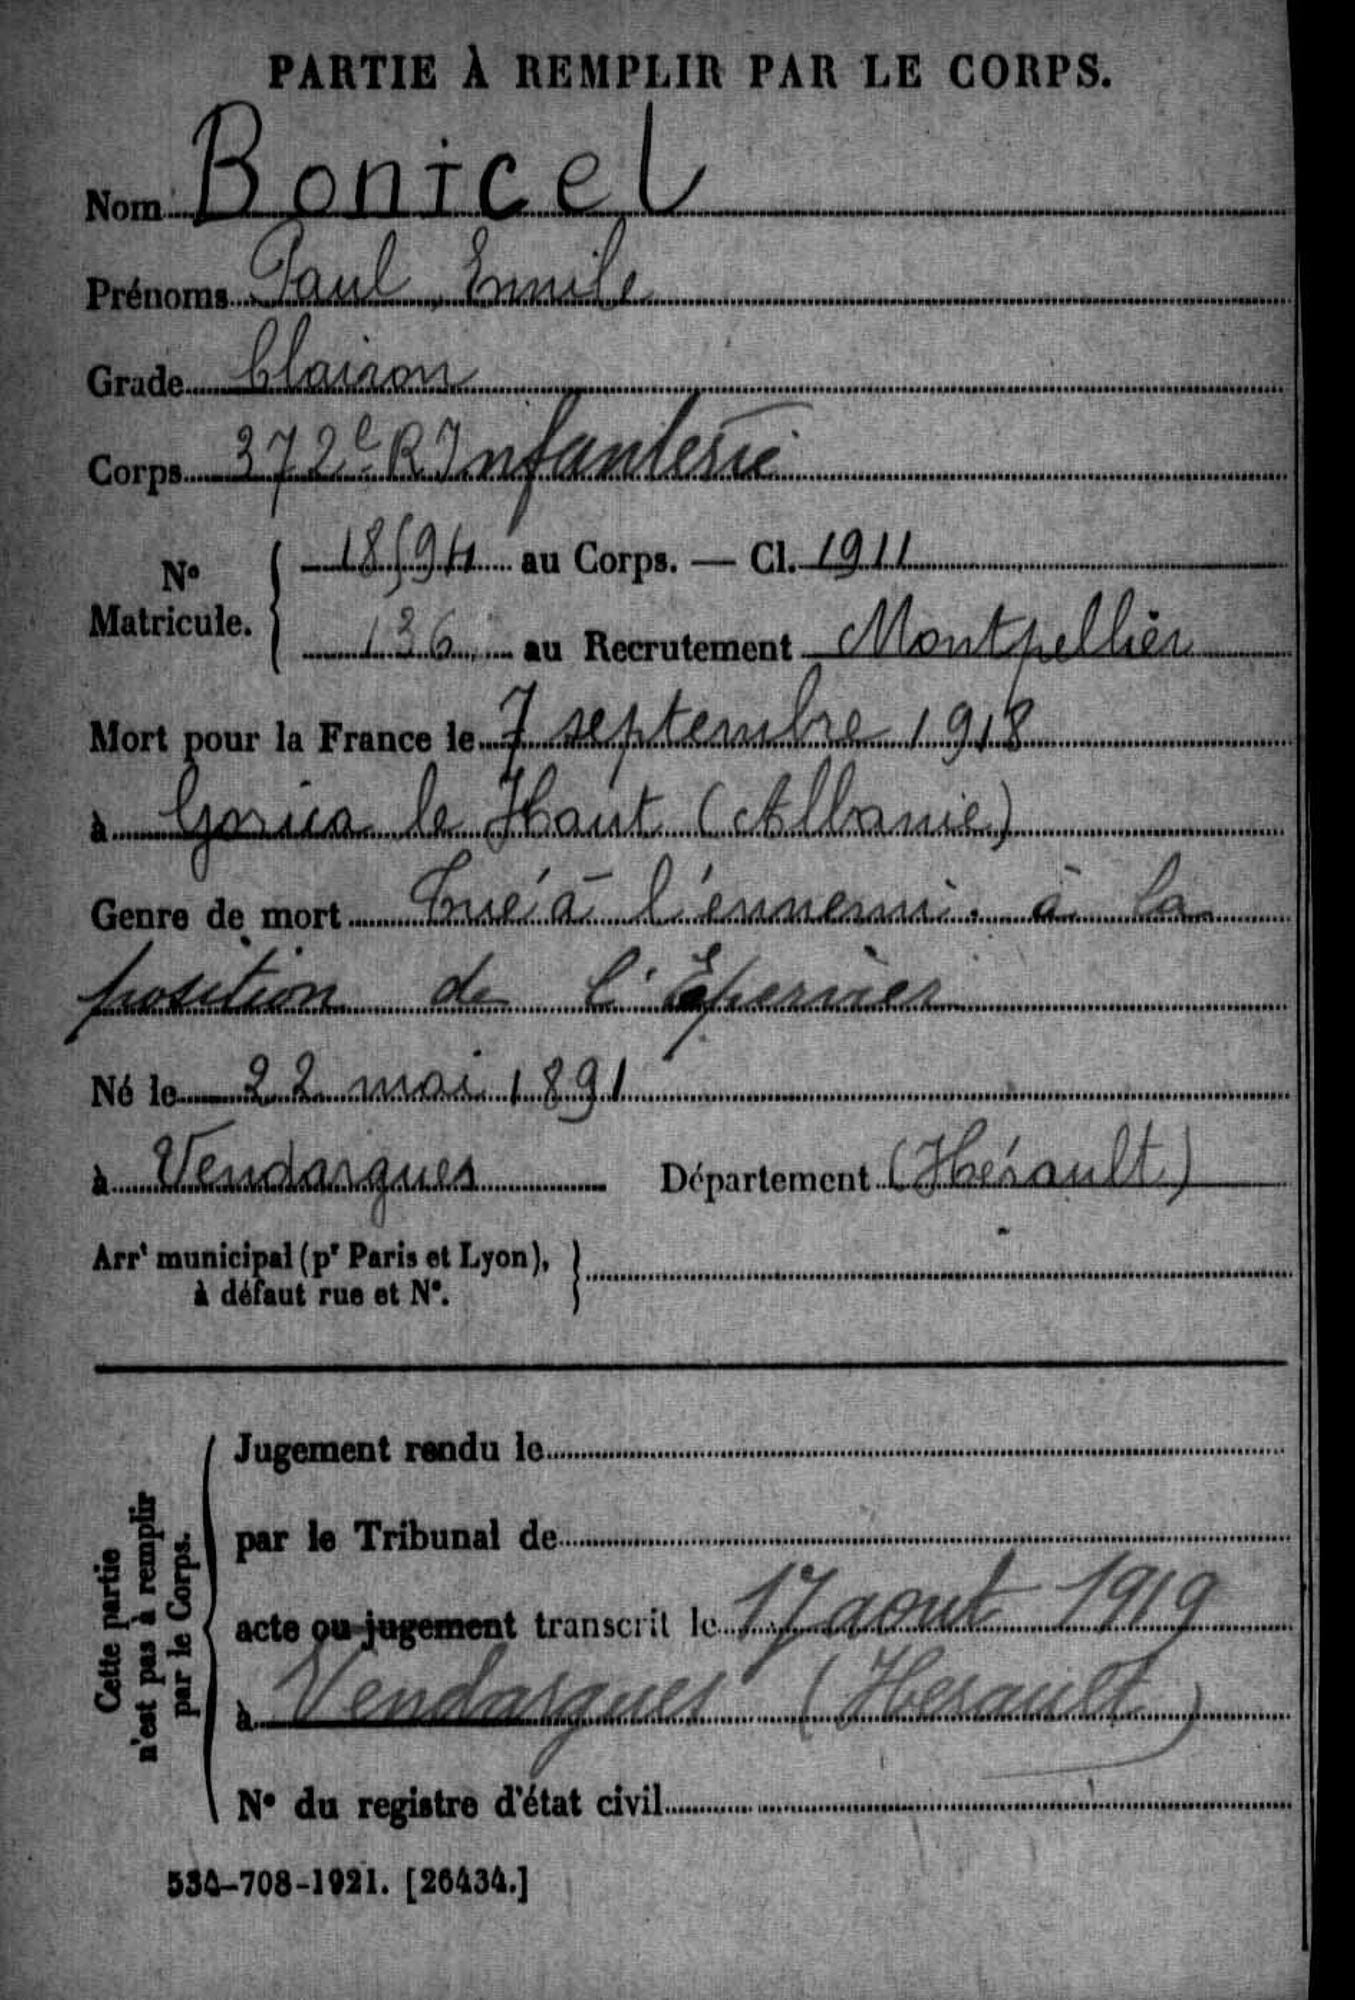 PARTIE À REMPLIR PAR LE CORPS.
Nom Bonicel
Prénoms Paul Emile
Grade Clairon
Corps 372e R Infanterie
No Matricule. 18594 au Corps. — Cl. 1911
136 au Recrutement Montpellier
Mort pour la France le 7 septembre 1918
à Gorica le Haut (Albanie)
Genre de mort Tué à l'ennemi à la
position de l'Epervier
Né le 22 mai 1891
à Vendargues Département (Hérault)
Arrt municipal (pr Paris et Lyon),
à défaut rue et No.
Cette partie
n'est pas à remplir
par le Corps.
Jugement rendu le
par le Tribunal de
acte ou jugement transcrit le 17 aout 1919
à Vendargues (Herault)
No du registre d'état civil
534-708-1921. [26434.]